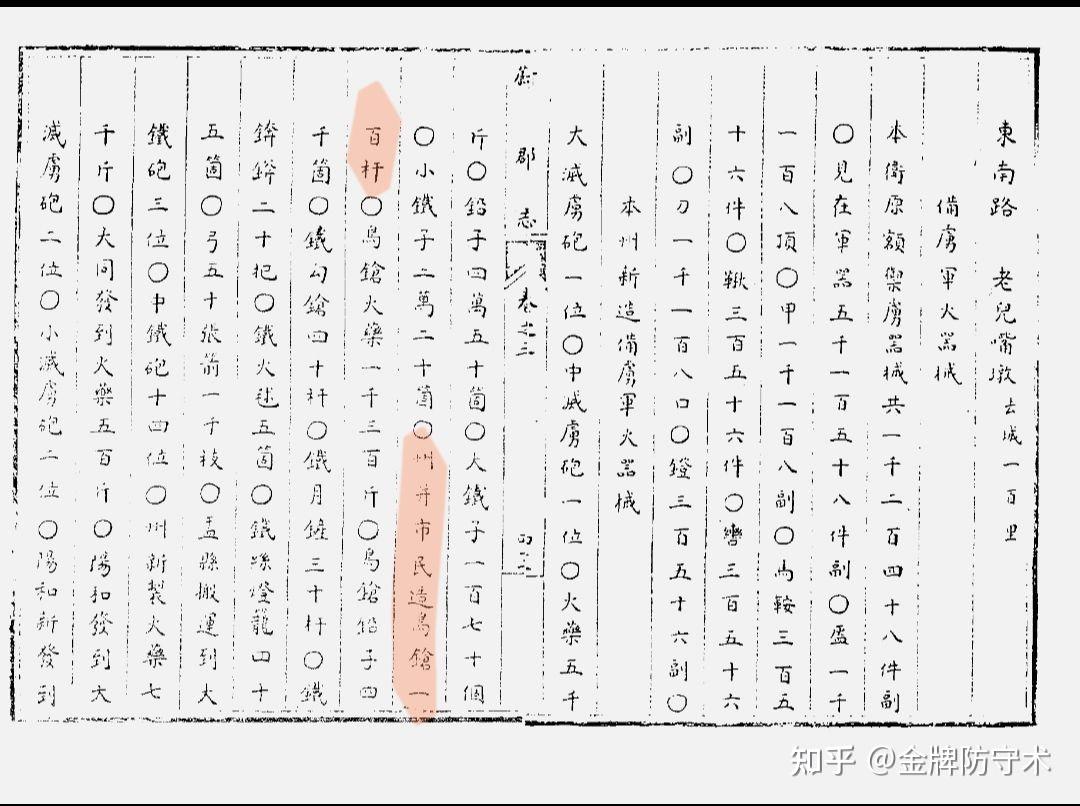 東南路 老兒嘴墩去城一百里
備虜軍火器械
本衛原額禦虜器械共一千二百四十八件副
〇見在軍器五千一百五十八件副〇盔一千
一百八頂〇甲一千一百八副〇馬鞍三百五
十六件〇鞦三百五十六件〇轡三百五十六
副〇刀一千一百八口〇鐙三百五十六副〇
本州新造備虜軍火器械
大滅虜砲一位〇中滅虜砲一位〇火藥五千
蔚郡志 卷之三
斤〇鉛子四萬五十箇〇大鐵子一百七十個
〇小鐵子二萬二十箇〇州并市民造鳥鎗一
百杆〇鳥鎗火藥一千三百斤〇鳥鎗鉛子四
千箇〇鐵勾鎗四十杆〇鐵月鏟三十杆〇鐵
二十把〇鐵火毬五箇〇鐵絲燈籠四十
五箇〇弓五十張箭一千枝〇盂縣搬運到大
鐵砲三位〇中鐵砲十四位〇州新製火藥七
千斤〇大同發到火藥五百斤〇陽和發到大
滅虜砲二位〇小滅虜砲二位〇陽和新發到
知乎 @金牌防守术